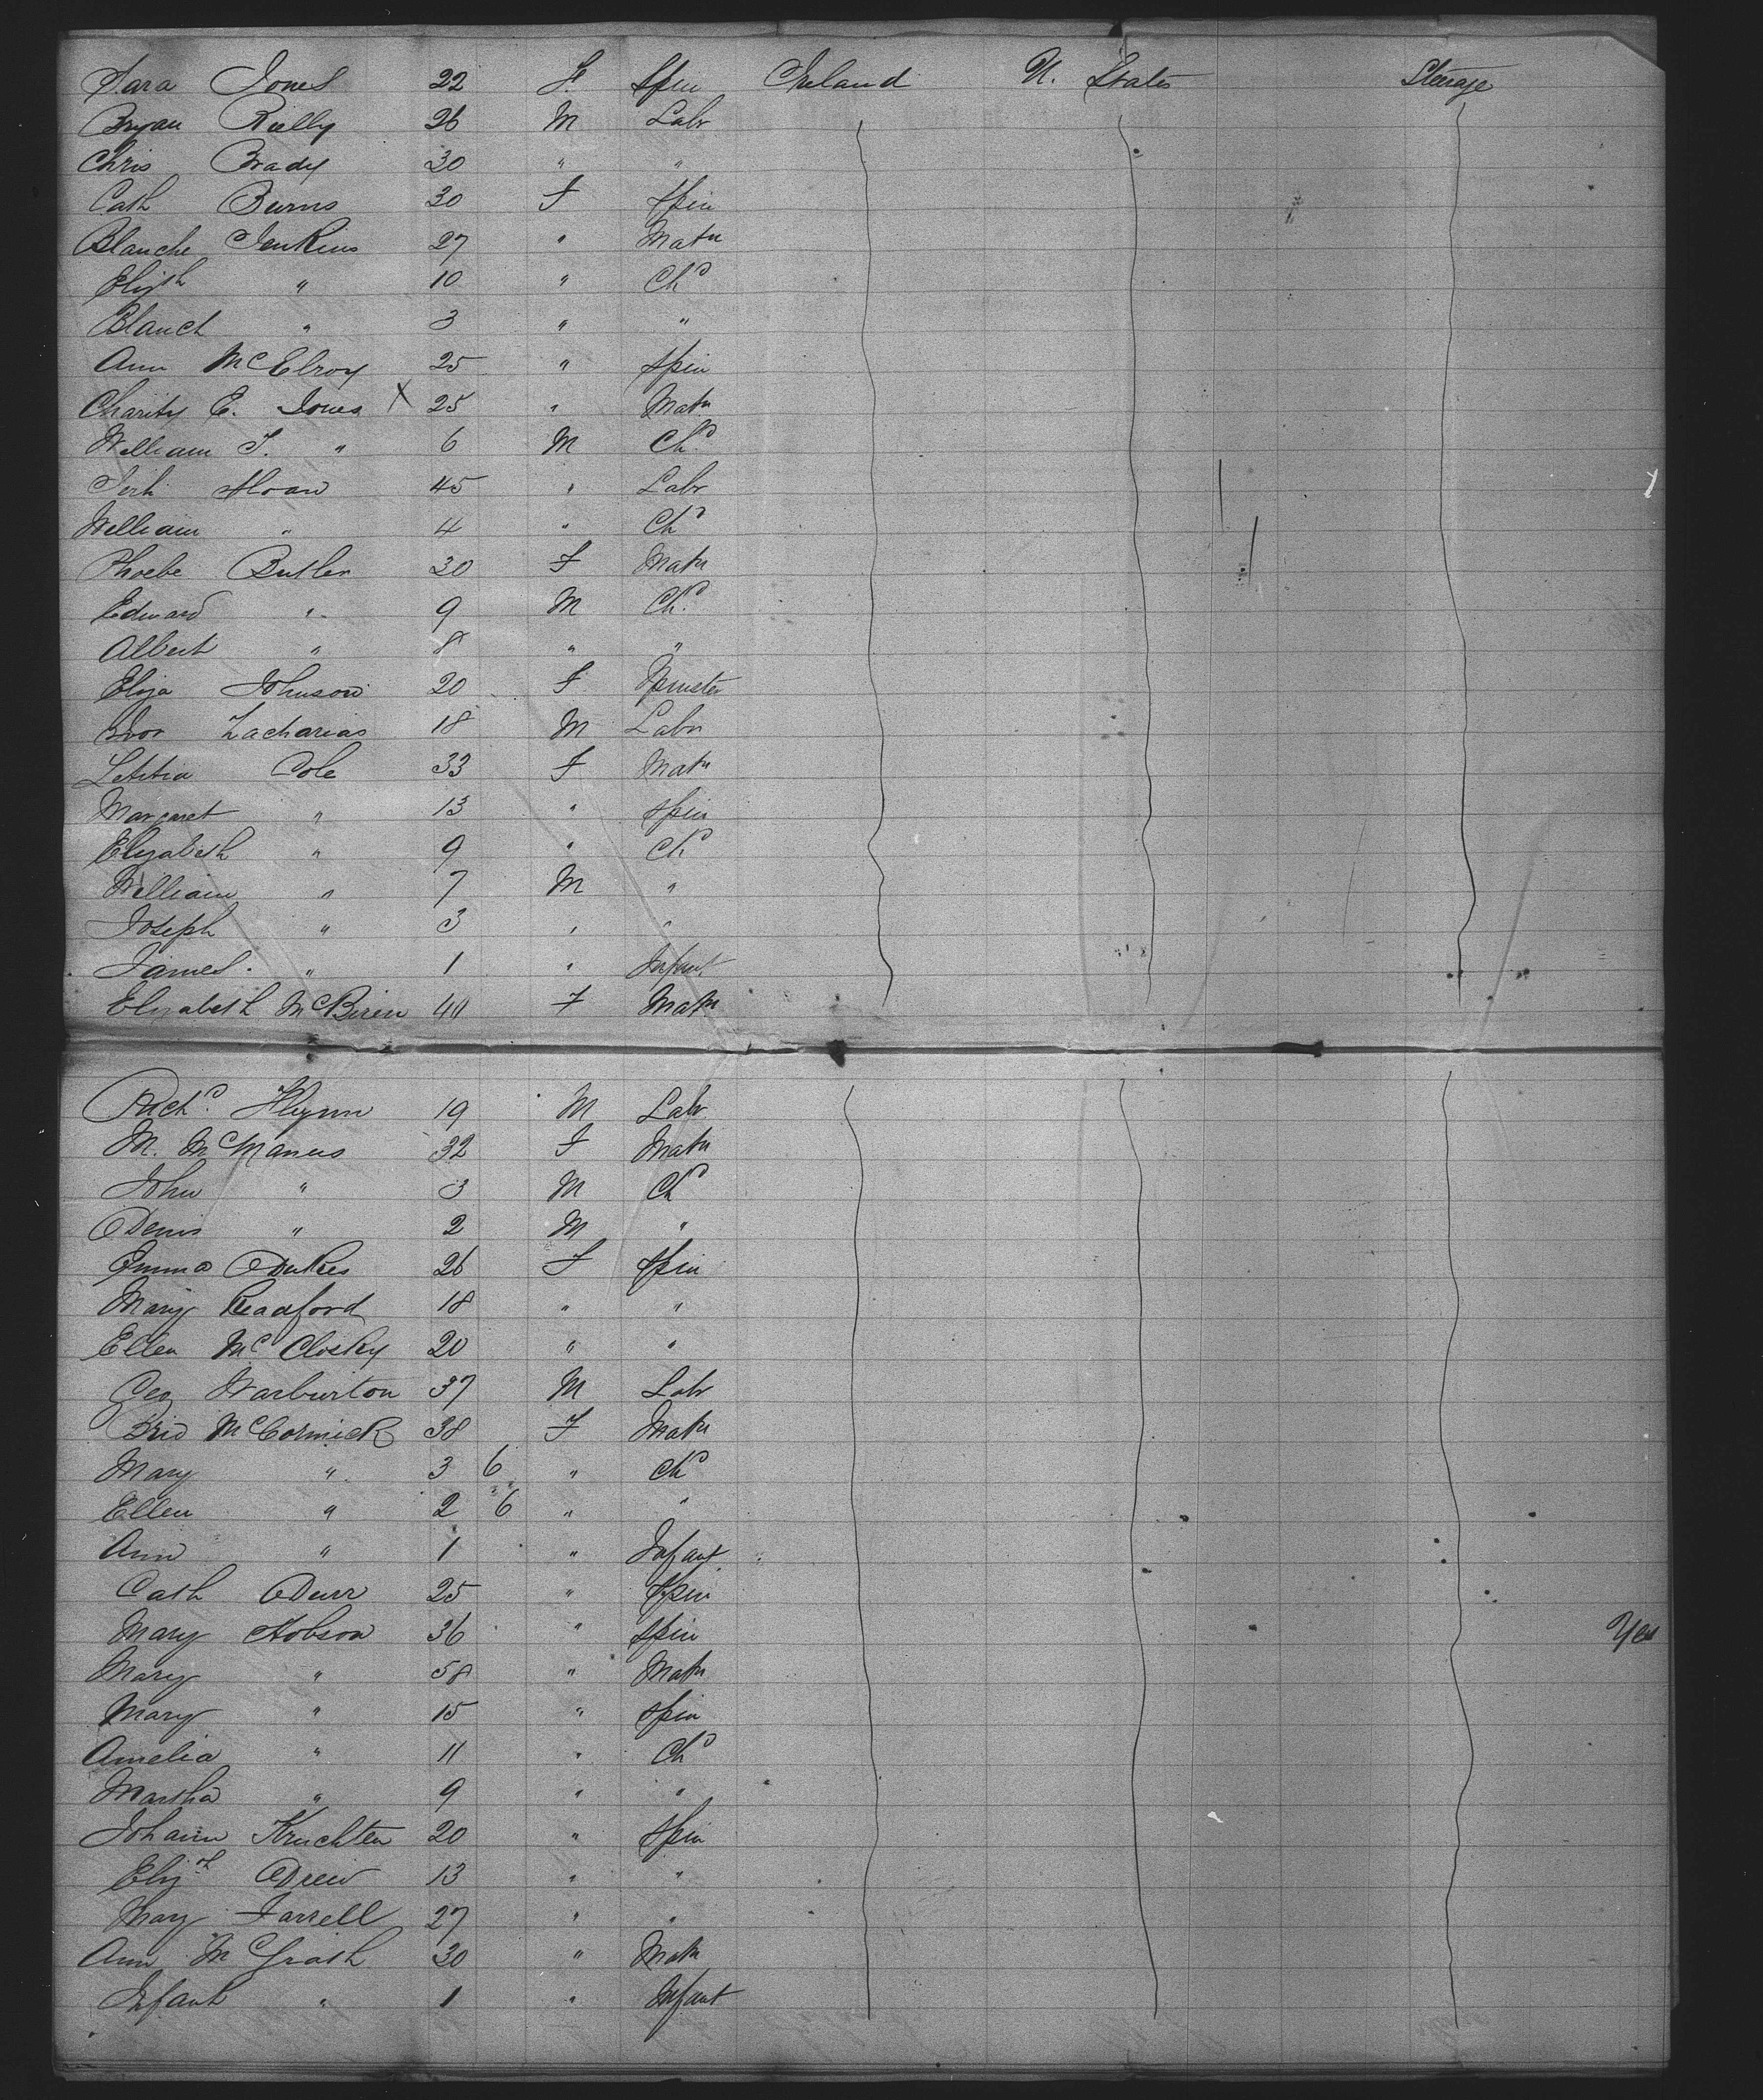 Sara Jones 22 F. Spin Ireland U. States Steerage
Bryan Reilly 26 M Labr
Chris Brady 30 " "
Cath Burns 30 F Spin
Blanche Jenkins 27 " Matn
Elizth " 10 " Chd
Blanch " 3 " "
Ann McElroy 25 " Spin
Charity E. Jones X 25 " Matn
William J. " 6 M Chd
Sloan 45 " Labr
William " 4 " Chd
Phoebe Butler 30 F Matn
Edward " 9 M Chd
Albert " 8 " "
Eliza Johnson 20 F Spinster
Zacharias 18 M Labr
Letitia Cole 33 F Matn
Margaret " 13 " Spin
Elizabeth " 9 " Chd
William " 7 M "
Joseph " 3 " "
James " 1 " Infant
Elizabeth McBirin 40 F Matn
Richd. Flynn 19 M Labr
M. McManus 32 F Matn
John " 3 M Chd
Denis " 2 M "
Emma Dukes 26 F Spin
Mary Readford 18 " "
Ellen McClosky 20 " "
Geo Warburton 37 M Labr
Brid McCormick 38 F Matn
Mary " 3 6 " Chd
Ellen " 2 6 " "
Ann " 1 " Infant
Cath Durr 25 " Spin
Mary Hobson 36 " Spin Yes
Mary " 58 " Matn
Mary " 15 " Spin
Amelia " 11 " Chd
Martha " 9 " "
Johann Kruchten 20 " Spin
Elizth Drew 13 " "
Mary Farrell 27 " "
Ann McGrath 30 " Matn
Infant " 1 " Infant